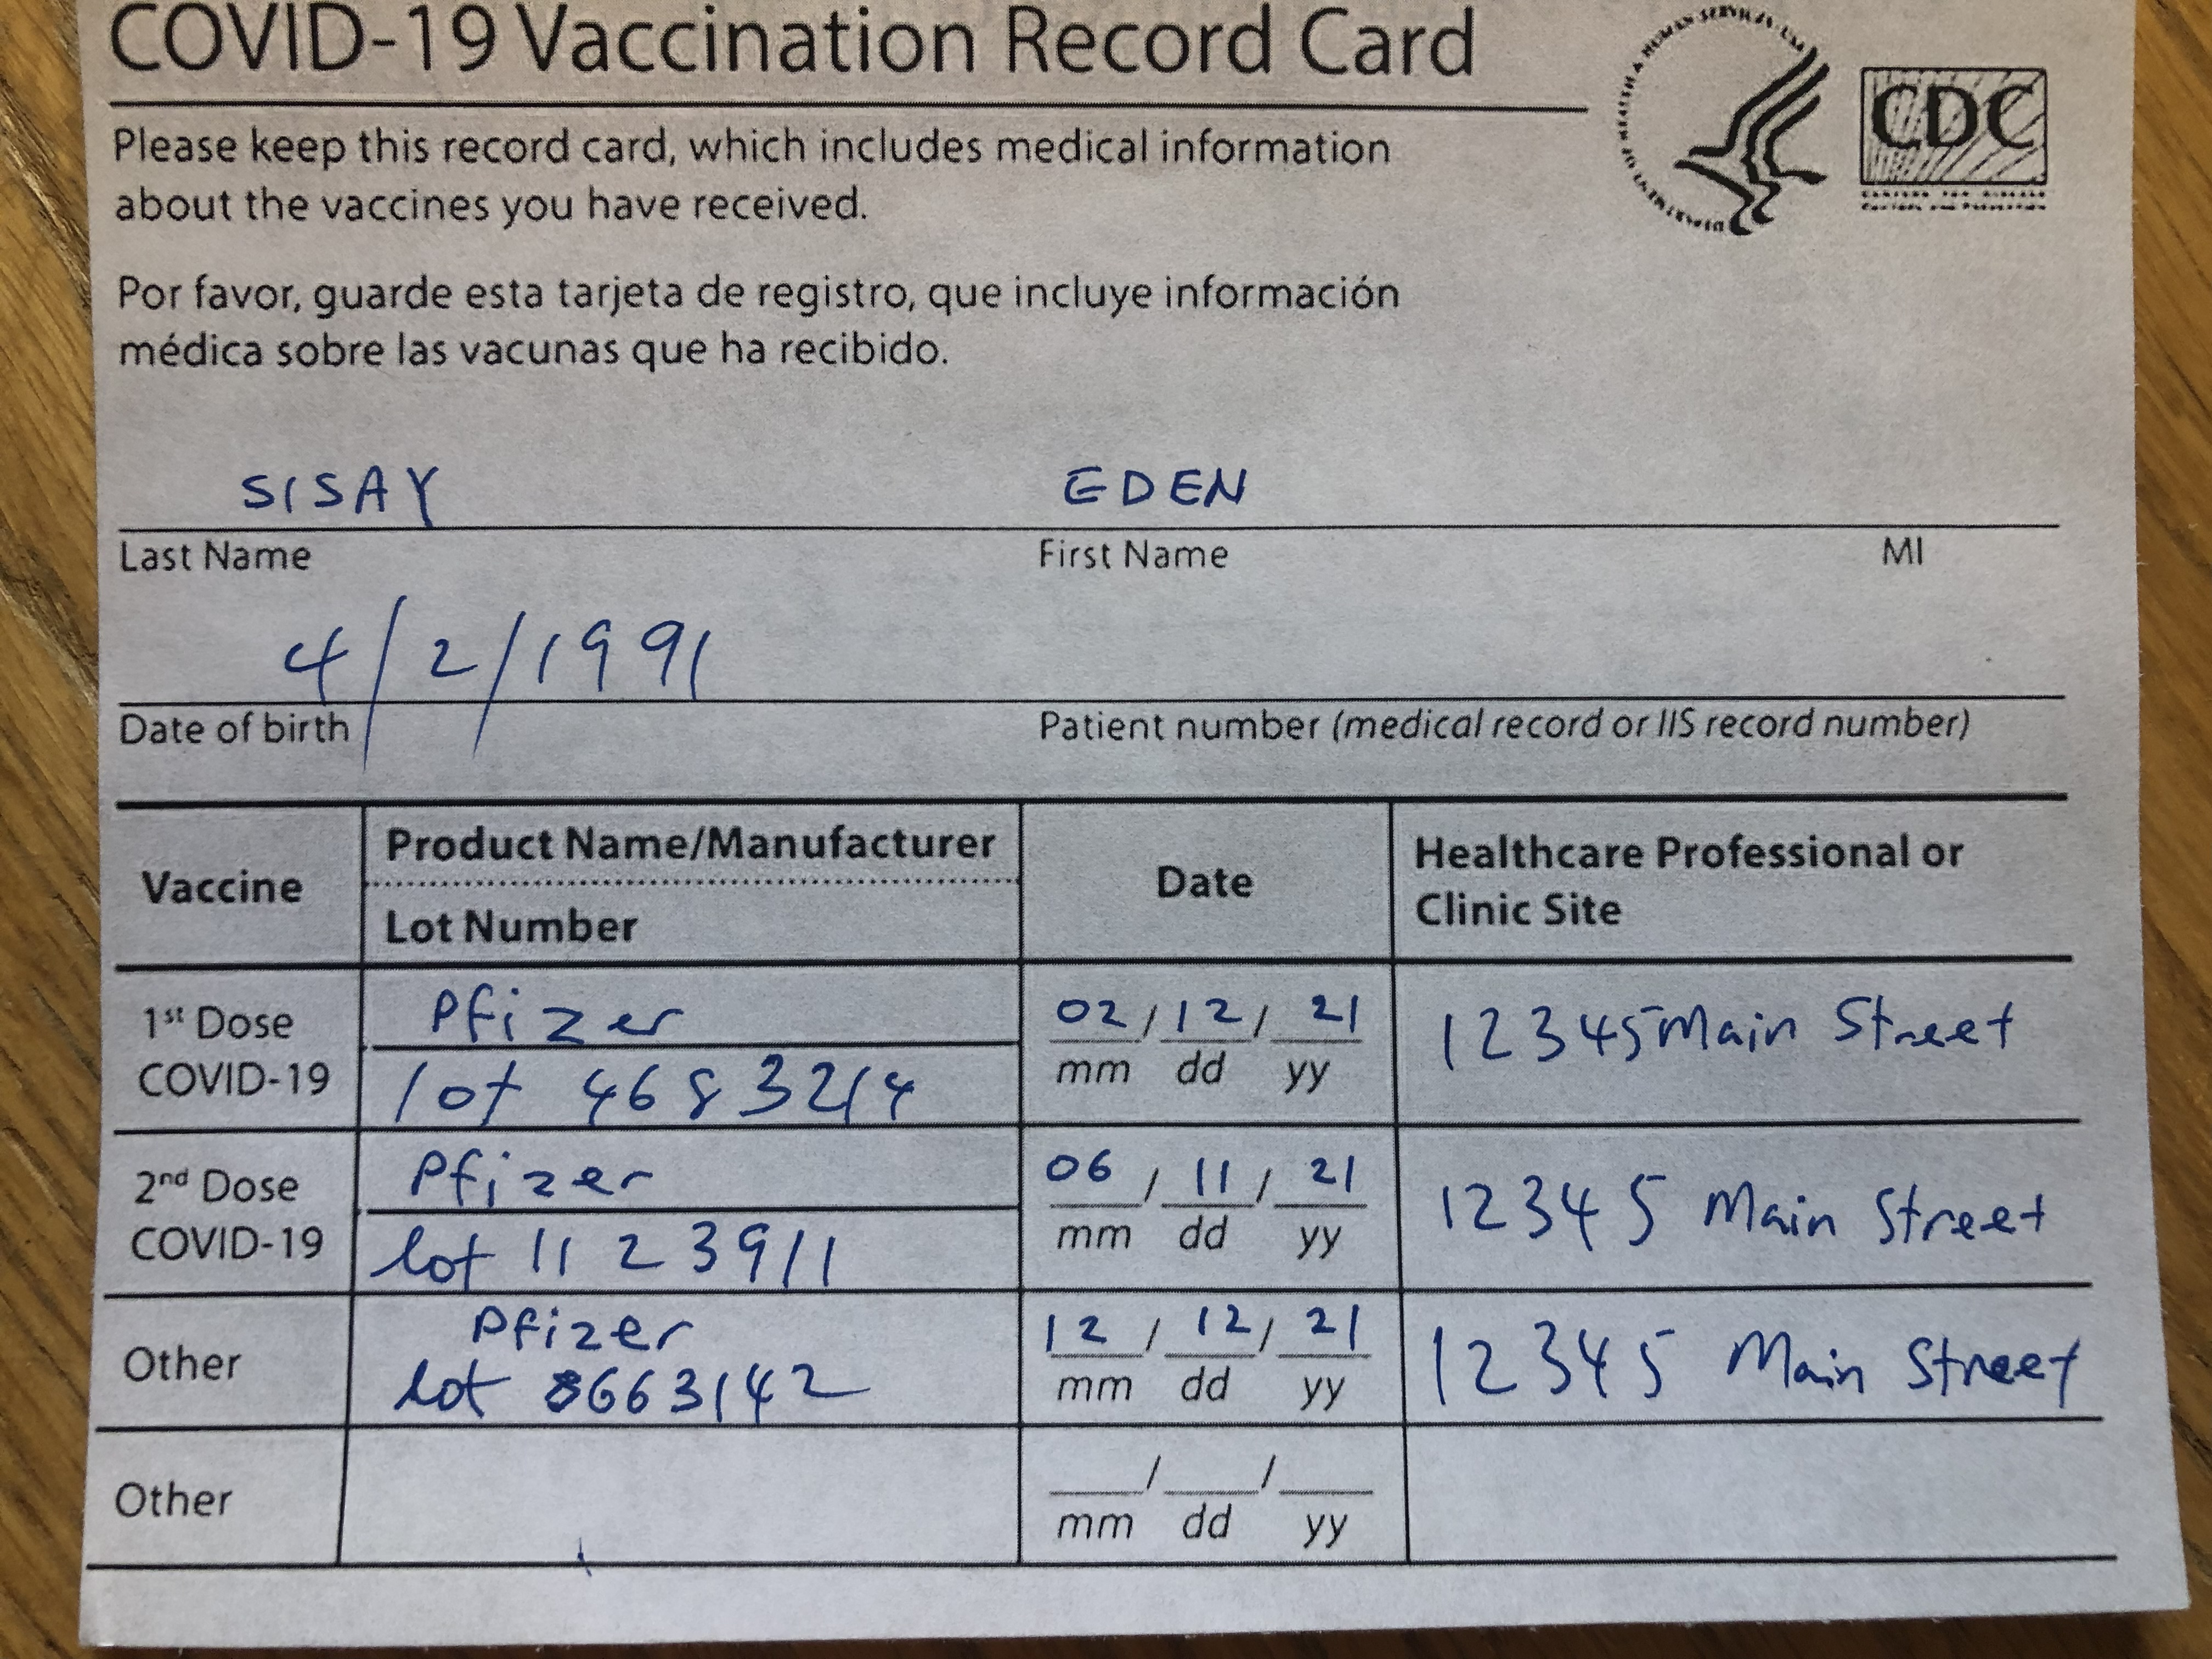 COVID-19 Vaccination Record Card
CDC
Please keep this record card, which includes medical information
about the vaccines you have received.
Por favor, guarde esta tarjeta de registro, que incluye información
médica sobre las vacunas que ha recibido.
SISAY EDEN
Last Name First Name MI
4/2/1991
Date of birth Patient number (medical record or IIS record number)
Vaccine
Product Name/Manufacturer
Lot Number
Date
Healthcare Professional or
Clinic Site
1st Dose
COVID-19
Pfizer
lot 4683214
02/12/21
mm dd yy
12345 Main Street
2nd Dose
COVID-19
Pfizer
lot 1123911
06/11/21
mm dd yy
12345 Main Street
Other
Pfizer
lot 8663142
12/12/21
mm dd yy
12345 Main Street
Other
/ /
mm dd yy